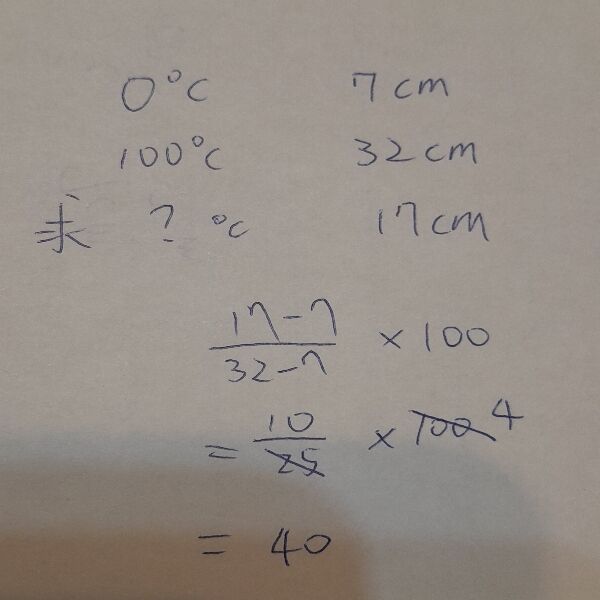 0°C 7 cm
100°C 32 cm
求 ? °C 17 cm
17-7
32-7
× 100
= 10/25 × 100 4
= 40